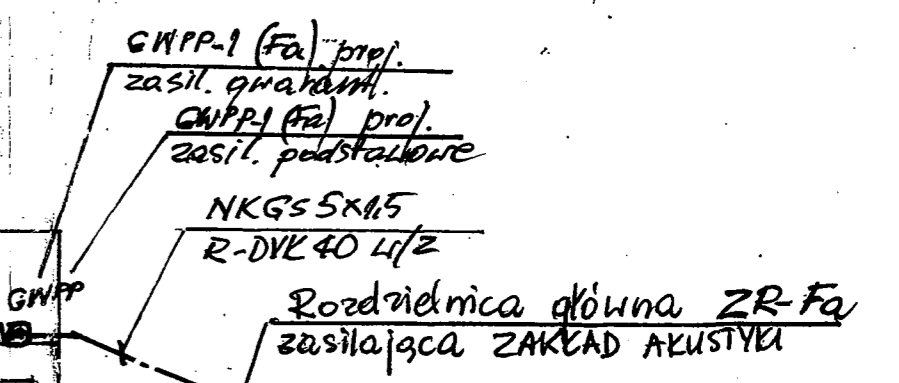 GWPP-1 (Fa) proj.
zasil. gwarant.
GWPP-1 (Fa) proj.
zasil. podstawowe
NKGs 5x1,5
R-DVK 40 u/z
GWPP
Rozdzielnica główna ZR-Fa
zasilająca ZAKŁAD AKUSTYKI